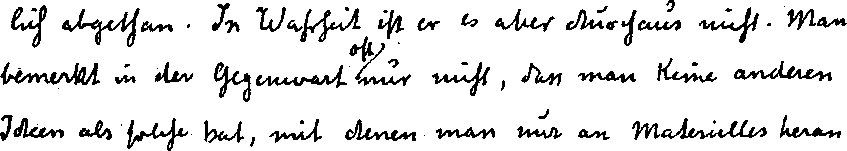 lich abgethan. In Wahrheit ist er es aber durchaus nicht. Man
bemerkt in der Gegenwart oft nur nicht, dass man keine anderen
Ideen als solche hat, mit denen man nur an Materielles heran